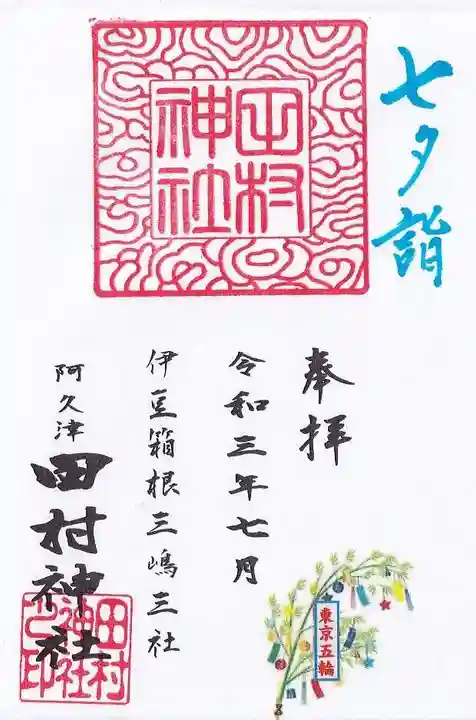 七夕詣
田村
神社
奉拝
令和三年七月
伊豆箱根三嶋三社
阿久津
田村神社
東京五輪
田村
神社
之印